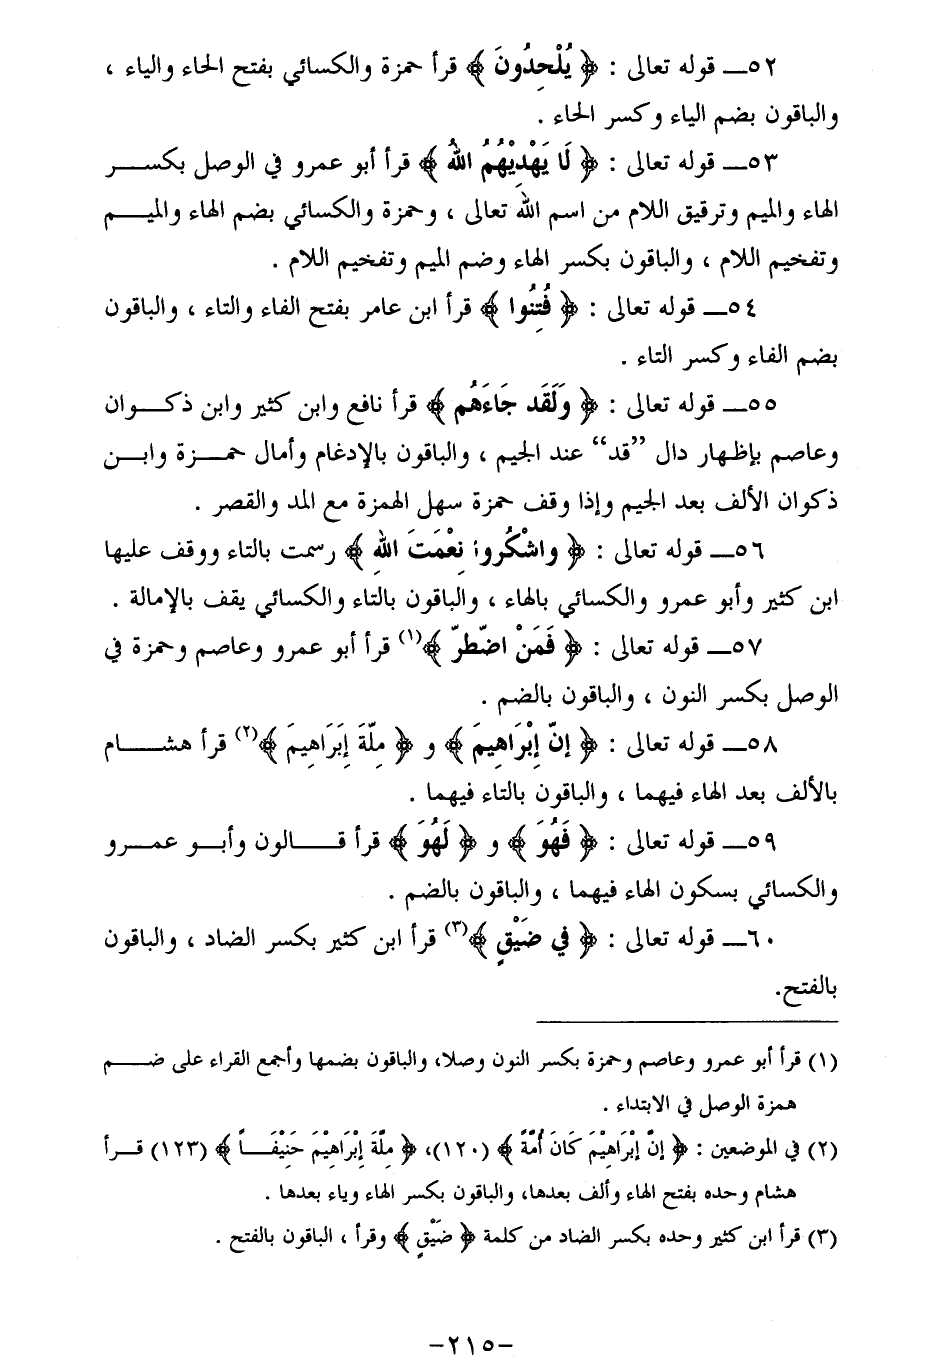 ٥٢ــ قوله تعالى : ﴿ يُلْحِدُونَ ﴾ قرأ حمزة والكسائي بفتح الحاء والياء ،
والباقون بضم الياء وكسر الحاء .
٥٣ــ قوله تعالى : ﴿ لَا يَهْدِيْهُمُ اللهُ ﴾ قرأ أبو عمرو في الوصل بكســـر
الهاء والميم وترقيق اللام من اسم الله تعالى ، وحمزة والكسائي بضم الهاء والميـــم
وتفخيم اللام ، والباقون بكسر الهاء وضم الميم وتفخيم اللام .
٥٤ــ قوله تعالى : ﴿ فُتِنُوا ﴾ قرأ ابن عامر بفتح الفاء والتاء ، والباقون
بضم الفاء وكسر التاء .
٥٥ــ قوله تعالى : ﴿ وَلَقَد جَاءَهُم ﴾ قرأ نافع وابن كثير وابن ذكـــوان
وعاصم بإظهار دال ”قد“ عند الجيم ، والباقون بالإدغام وأمال حمـــزة وابـــن
ذكوان الألف بعد الجيم وإذا وقف حمزة سهل الهمزة مع المد والقصر .
٥٦ــ قوله تعالى : ﴿ واشْكُروا نِعْمَتَ اللهِ ﴾ رسمت بالتاء ووقف عليها
ابن كثير وأبو عمرو والكسائي بالهاء ، والباقون بالتاء والكسائي يقف بالإمالة .
٥٧ــ قوله تعالى : ﴿ فَمَنْ اضّطرّ ﴾(١) قرأ أبو عمرو وعاصم وحمزة في
الوصل بكسر النون ، والباقون بالضم .
٥٨ــ قوله تعالى : ﴿ إنّ إِبْرَاهِيمَ ﴾ و ﴿ مِلّةَ إِبَرَاهِيمَ ﴾(٢) قرأ هشـــام
بالألف بعد الهاء فيهما ، والباقون بالتاء فيهما .
٥٩ــ قوله تعالى : ﴿ فَهُوَ ﴾ و ﴿ لَهُوَ ﴾ قرأ قـــالون وأبـــو عمـــرو
والكسائي بسكون الهاء فيهما ، والباقون بالضم .
٦٠ــ قوله تعالى : ﴿ في ضَيْقٍ ﴾(٣) قرأ ابن كثير بكسر الضاد ، والباقون
بالفتح.
(١) قرأ أبو عمرو وعاصم وحمزة بكسر النون وصلا، والباقون بضمها وأجمع القراء على ضـــم
همزة الوصل في الابتداء .
(٢) في الموضعين : ﴿ إنّ إبْرَاهِيْمَ كَانَ أُمّةً ﴾ (١٢٠)، ﴿ مِلّةَ إبْرَاهِيْمَ حَنِيْفَـــاً ﴾ (١٢٣) قـــرأ
هشام وحده بفتح الهاء وألف بعدها، والباقون بكسر الهاء وياء بعدها .
(٣) قرأ ابن كثير وحده بكسر الضاد من كلمة ﴿ ضَيْقٍ ﴾ وقرأ ، الباقون بالفتح .
-٢١٥-